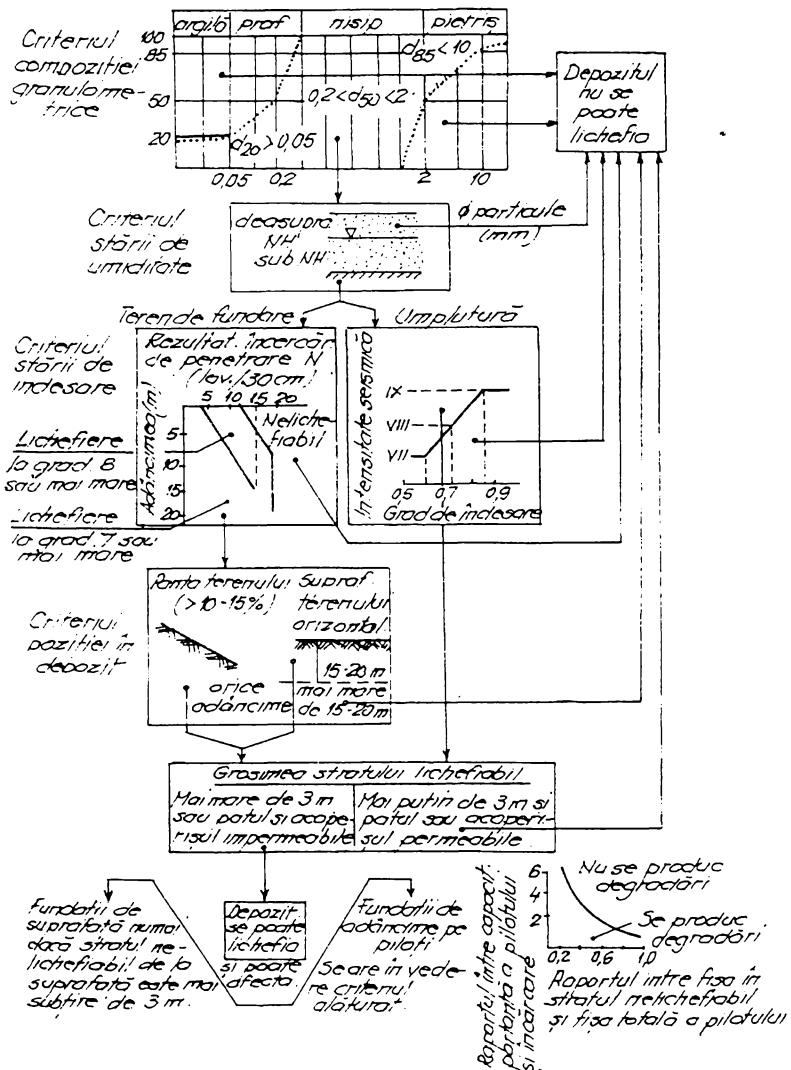 argilă praf nisip pietriș
Criteriul
compoziției
granulome-
trice
100
85
50
20
d85 < 10
0,2 < d50 < 2
d20 > 0,05
0,05 0,2 2 10
Depozitul
nu se
poate
lichefia
Criteriul
stării de
umiditate
deasupra
NH
sub NH
φ particule
(mm)
Teren de fundare
Umplutură
Criteriul
stării de
îndesare
Rezultat. încercăr.
de penetrare N
(lov./30cm)
5 10 15 20
Adâncimea(m)
5
10
15
20
Neliche-
fiabil
Lichefiere
la grad. 8
sau mai mare
Lichefiere
la grad. 7 sau
mai mare
Intensitate seismică
IX
VIII
VII
0,5 0,7 0,9
Grad de îndesare
Criteriul
poziției în
depozit
Panta terenului
(>10-15%)
Supraf.
terenului
orizontal
orice
adâncime
15-20 m
mai mare
de 15-20m
Grosimea stratului lichefiabil
Mai mare de 3 m
sau patul și acope-
rișul impermeabile
Mai puțin de 3 m și
patul sau acoperi-
șul permeabile
Fundații de
suprafață numai
dacă stratul ne-
lichefiabil de la
suprafață este mai
subțire de 3 m.
Depozit.
se poate
lichefia
și poate
afecta
Fundații de
adâncime pe
piloți
Se are în vede-
re criteriul
alăturat.
Raportul între capacit.
portantă a pilotului
și încărcare
6
4
2
Nu se produc
degradări
Se produc
degradări
0,2 0,6 1,0
Raportul intre fișa în
stratul nelichefiabil
și fișa totală a pilotului